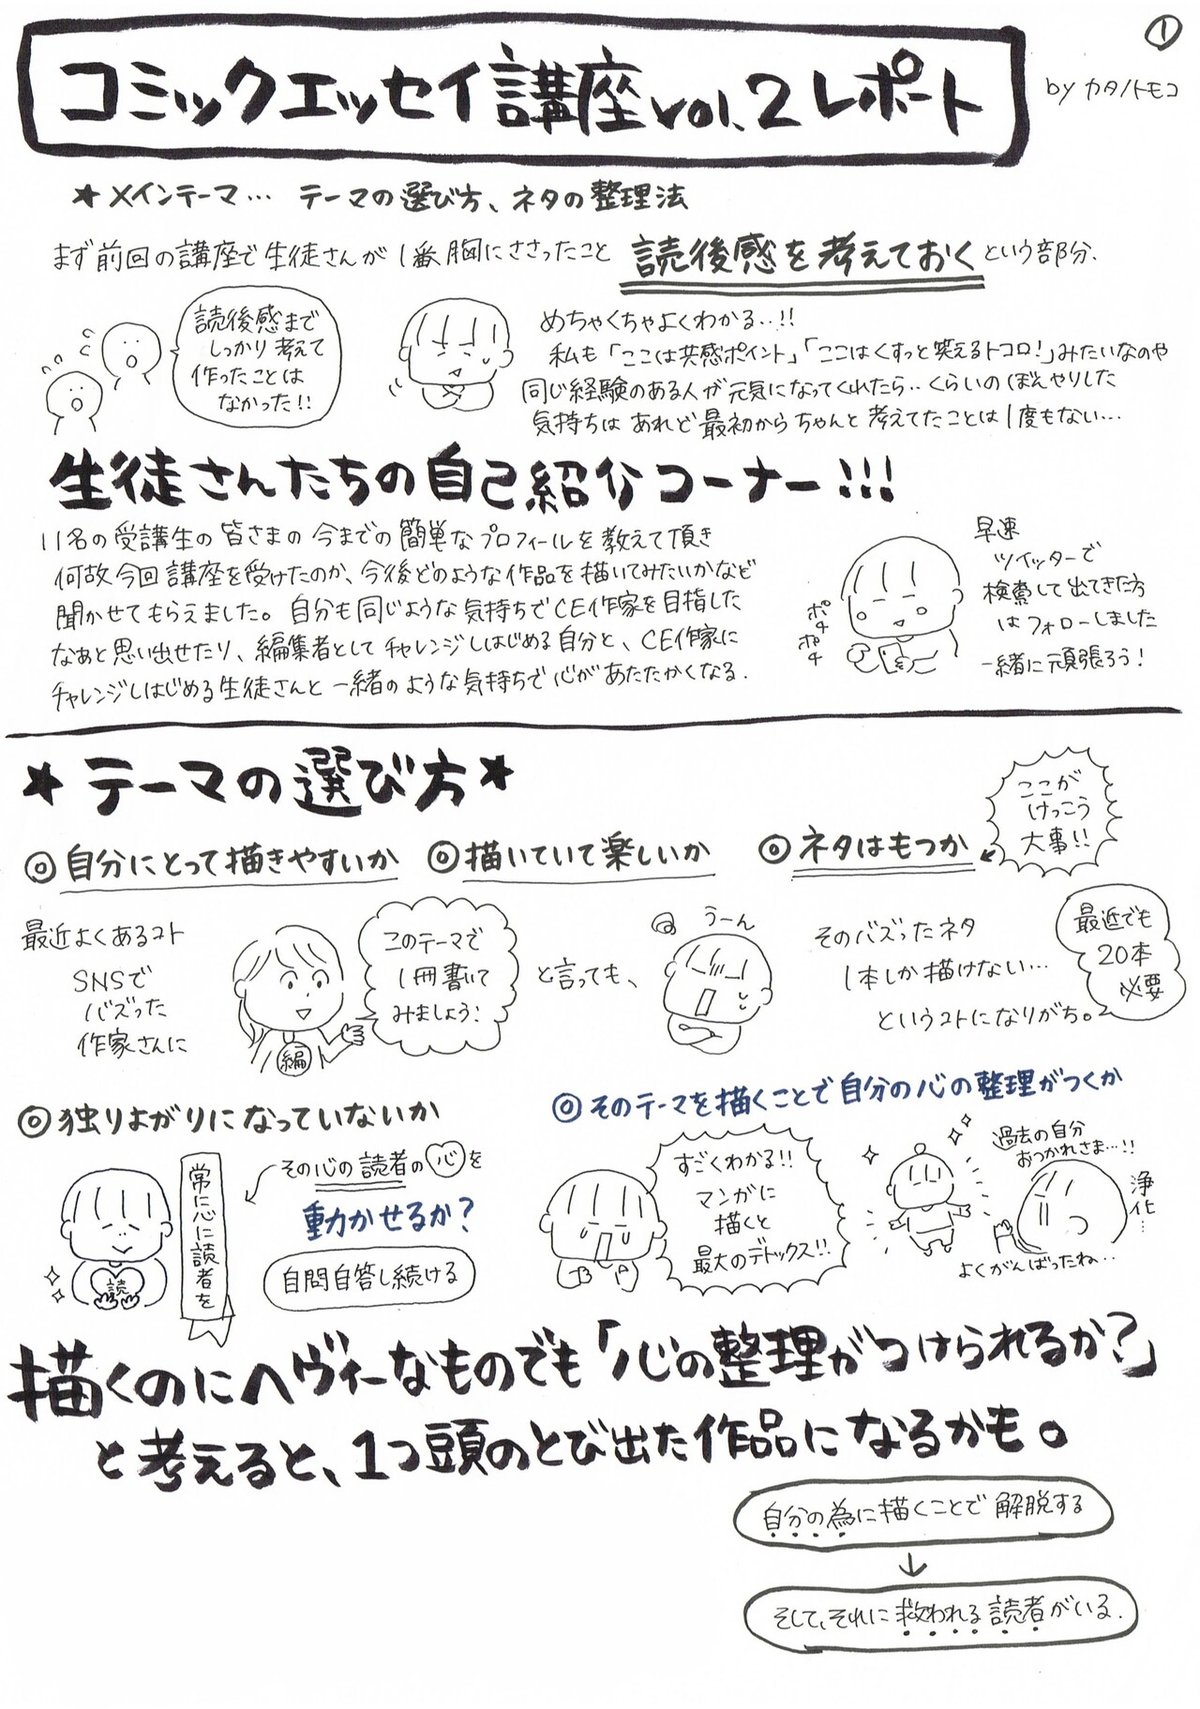 ①
コミックエッセイ講座vol.2レポート
by カタノトモコ
★メインテーマ… テーマの選び方、ネタの整理法
まず前回の講座で生徒さんが1番胸にささったこと 読後感を考えておく という部分.
読後感まで
しっかり考えて
作ったことは
なかった!!
めちゃくちゃよくわかる‥!!
私も「ここは共感ポイント」「ここはくすっと笑えるトコロ!」みたいなのや
同じ経験のある人が元気になってくれたら‥くらいのぼんやりした
気持ちはあれど最初からちゃんと考えてたことは1度もない…
生徒さんたちの自己紹介コーナー!!!
11名の受講生の皆さまの今までの簡単なプロフィールを教えて頂き
何故今回講座を受けたのか、今後どのような作品を描いてみたいかなど
聞かせてもらえました。自分も同じような気持ちでCE作家を目指した
なぁと思い出せたり、編集者としてチャレンジしはじめる自分と、CE作家に
チャレンジしはじめる生徒さんと一緒のような気持ちで心があたたかくなる.
ポチ
ポチ
早速
ツイッターで
検索して出てきた方
はフォローしました
一緒に頑張ろう!
★テーマの選び方★
◎自分にとって描きやすいか ◎描いていて楽しいか ◎ネタはもつか
ここが
けっこう
大事!!
最近よくあるコト
SNSで
バズった
作家さんに
編
このテーマで
1冊書いて
みましょう!
と言っても、
うーん
そのバズったネタ
1本しか描けない…
というコトになりがち。
最近でも
20本
必要
◎独りよがりになっていないか
読
常に心に読者を
その心の読者の心を
動かせるか?
自問自答し続ける
◎そのテーマを描くことで自分の心の整理がつくか
すごくわかる!!
マンガに
描くと
最大のデトックス!!
過去の自分
おつかれさま…!!
浄化…
よくがんばったね…
描くのにヘヴィーなものでも「心の整理がつけられるか?」
と考えると、1つ頭のとび出た作品になるかも。
自分の為に描くことで解脱する
↓
そして、それに救われる読者がいる.